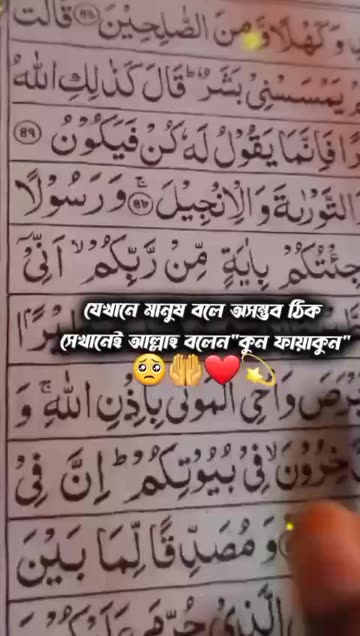 وَ كَهْلًا وَّ مِنَ الصّٰلِحِيْنَ قَالَتْ
يَمْسَسْنِيْ بَشَرٌ ؕ قَالَ كَذٰلِكِ اللّٰهُ
فَاِنَّمَا يَقُوْلُ لَهٗ كُنْ فَيَكُوْنُ
التَّوْرٰىةَ وَ الْاِنْجِيْلَ ۚ وَ رَسُوْلًا
جِئْتُكُمْ بِاٰيَةٍ مِّنْ رَّبِّكُمْ ۙ اَنِّيْۤ
যেখানে মানুষ বলে অসম্ভব ঠিক
সেখানেই আল্লাহ বলেন"কুন ফায়াকুন"
🥺🤲❤️💫
وَ اُحْيِ الْمَوْتٰى بِاِذْنِ اللّٰهِ ۚ وَ
فِيْ بُيُوْتِكُمْ ؕ اِنَّ فِيْ
وَ مُصَدِّقًا لِّمَا بَيْنَ
الَّذِيْ حُرِّمَ عَلَيْكُمْ